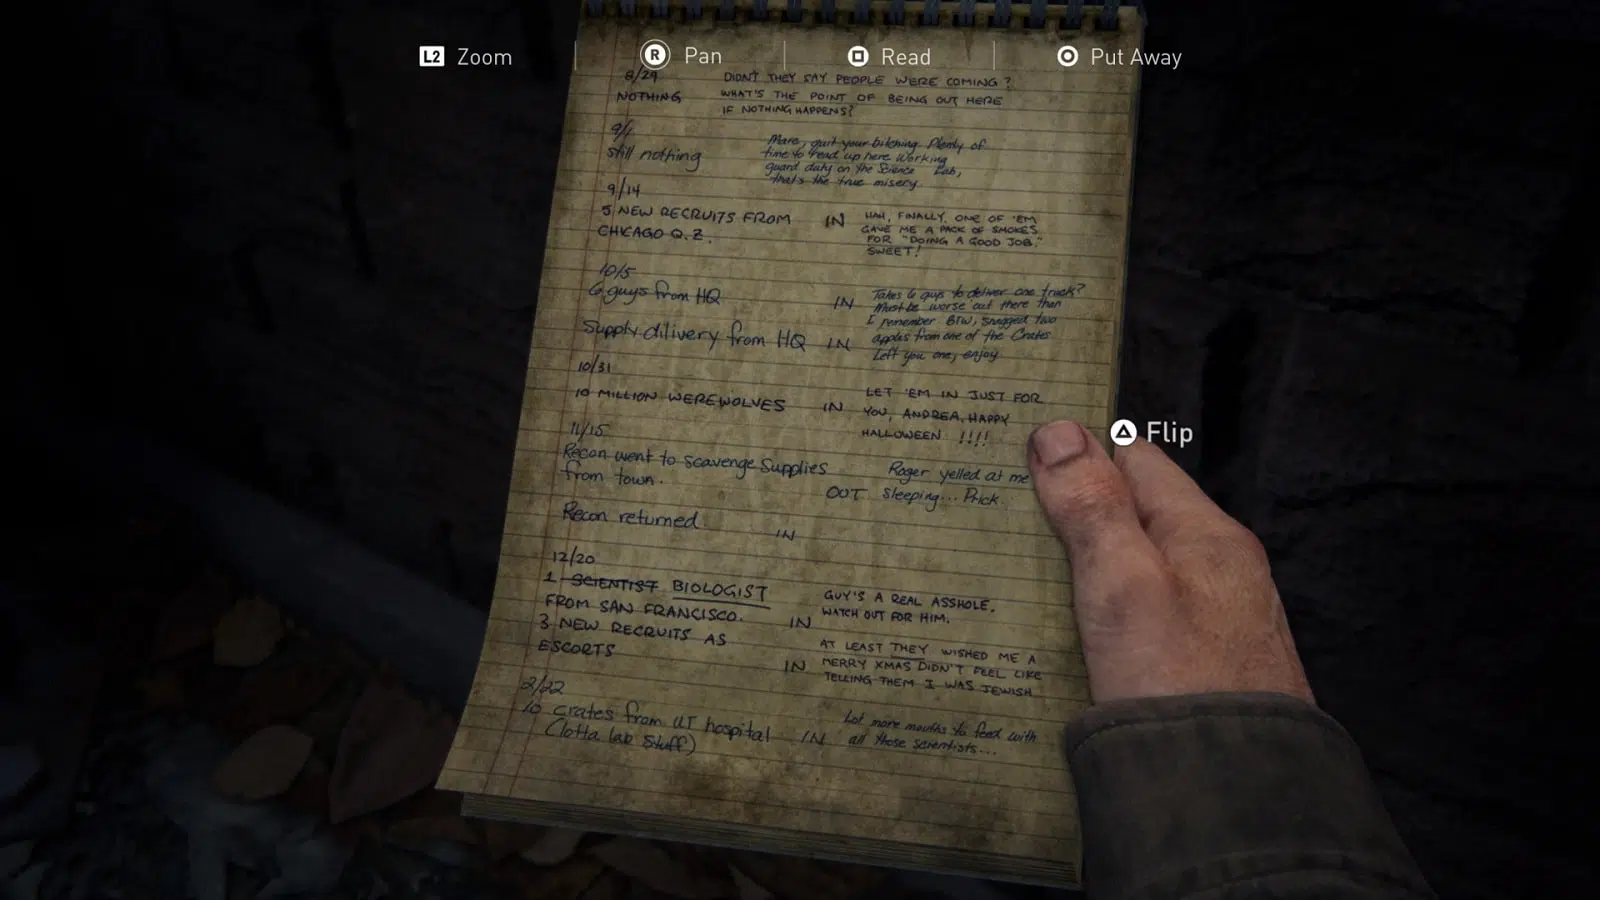 L2 Zoom
R Pan
Read
Put Away
8/29
DIDN'T THEY SAY PEOPLE WERE COMING?
NOTHING
WHAT'S THE POINT OF BEING OUT HERE
IF NOTHING HAPPENS?
9/1
still nothing
Mare, quit your bitching. Plenty of
time to read up here. Working
guard duty on the Science Lab,
that's the true misery.
9/14
5 NEW RECRUITS FROM
CHICAGO Q.Z.
IN
HAH, FINALLY. ONE OF 'EM
GAVE ME A PACK OF SMOKES
FOR "DOING A GOOD JOB."
SWEET!
10/5
6 guys from HQ
IN
Supply dilivery from HQ
IN
Takes 6 guys to deliver one truck?
Must be worse out there than
I remember. BTW, snagged two
apples from one of the Crates
Left you one, enjoy
10/31
10 MILLION WEREWOLVES
IN
LET 'EM IN JUST FOR
YOU, ANDREA. HAPPY
HALLOWEEN !!!!
11/15
Recon went to scavenge supplies
from town.
OUT
Roger yelled at me
sleeping... Prick.
Flip
Recon returned.
IN
12/20
1 SCIENTIST BIOLOGIST
FROM SAN FRANCISCO.
IN
GUY'S A REAL ASSHOLE.
WATCH OUT FOR HIM.
3 NEW RECRUITS AS
ESCORTS
IN
AT LEAST THEY WISHED ME A
MERRY XMAS DIDN'T FEEL LIKE
TELLING THEM I WAS JEWISH
2/22
10 crates from UT hospital
(lotta lab stuff)
IN
Lot more mouths to feed with
all those scientists...